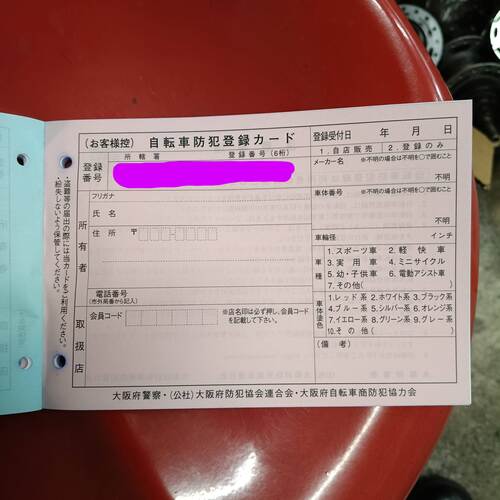 (お客様控) 自転車防犯登録カード
登録受付日 年 月 日
所轄署 登録番号(6桁)
登録番号
1.自店販売 2.登録のみ
メーカー名 ※不明の場合は不明を○で囲むこと
不明
車体番号 ※不明の場合は不明を○で囲むこと
不明
所有者
フリガナ
氏名
住所 〒
電話番号
(市外局番から記入)
車輪径 インチ
車種
1.スポーツ車 2.軽快車
3.実用車 4.ミニサイクル
5.幼・子供車 6.電動アシスト車
7.その他( )
車体塗色
1.レッド系 2.ホワイト系 3.ブラック系
4.ブルー系 5.シルバー系 6.オレンジ系
7.イエロー系 8.グリーン系 9.グレー系
10.その他( )
(備考)
取扱店
会員コード
※店名印は必ず押し、会員コードを記載して下さい。
大阪府警察・(公社)大阪府防犯協会連合会・大阪府自転車商防犯協力会
・盗難等の届出の際には当カードをご利用ください。
・紛失しないよう保管してください。